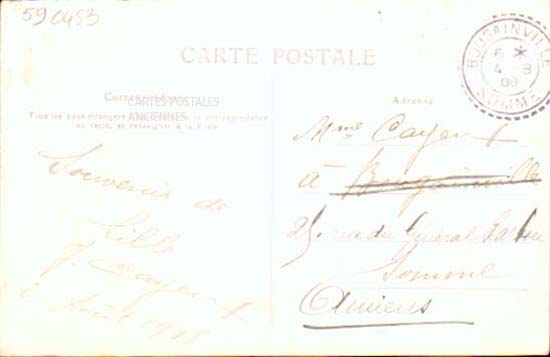 590453
CARTE POSTALE
BOUGAINVILLE
6 *
4 8
09
SOMME
Correspondance
CARTES POSTALES
ANCIENNES
Tous les pays étrangers correspondance
au recto, se renseigner à la Poste
Adresse
Mme Cayeux
à Bougainville
25, rue du Général
Somme
Amiens
Souvenir de
Lille
J Cayeux
Août